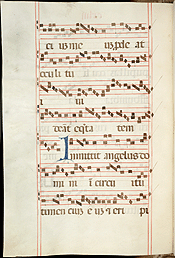 ei us me us pde at
oculi tu
i ui
deāt eq̄ta tem
Inmittit angelus do
mi ni ī circu itu
timen tiū e us & eri pi